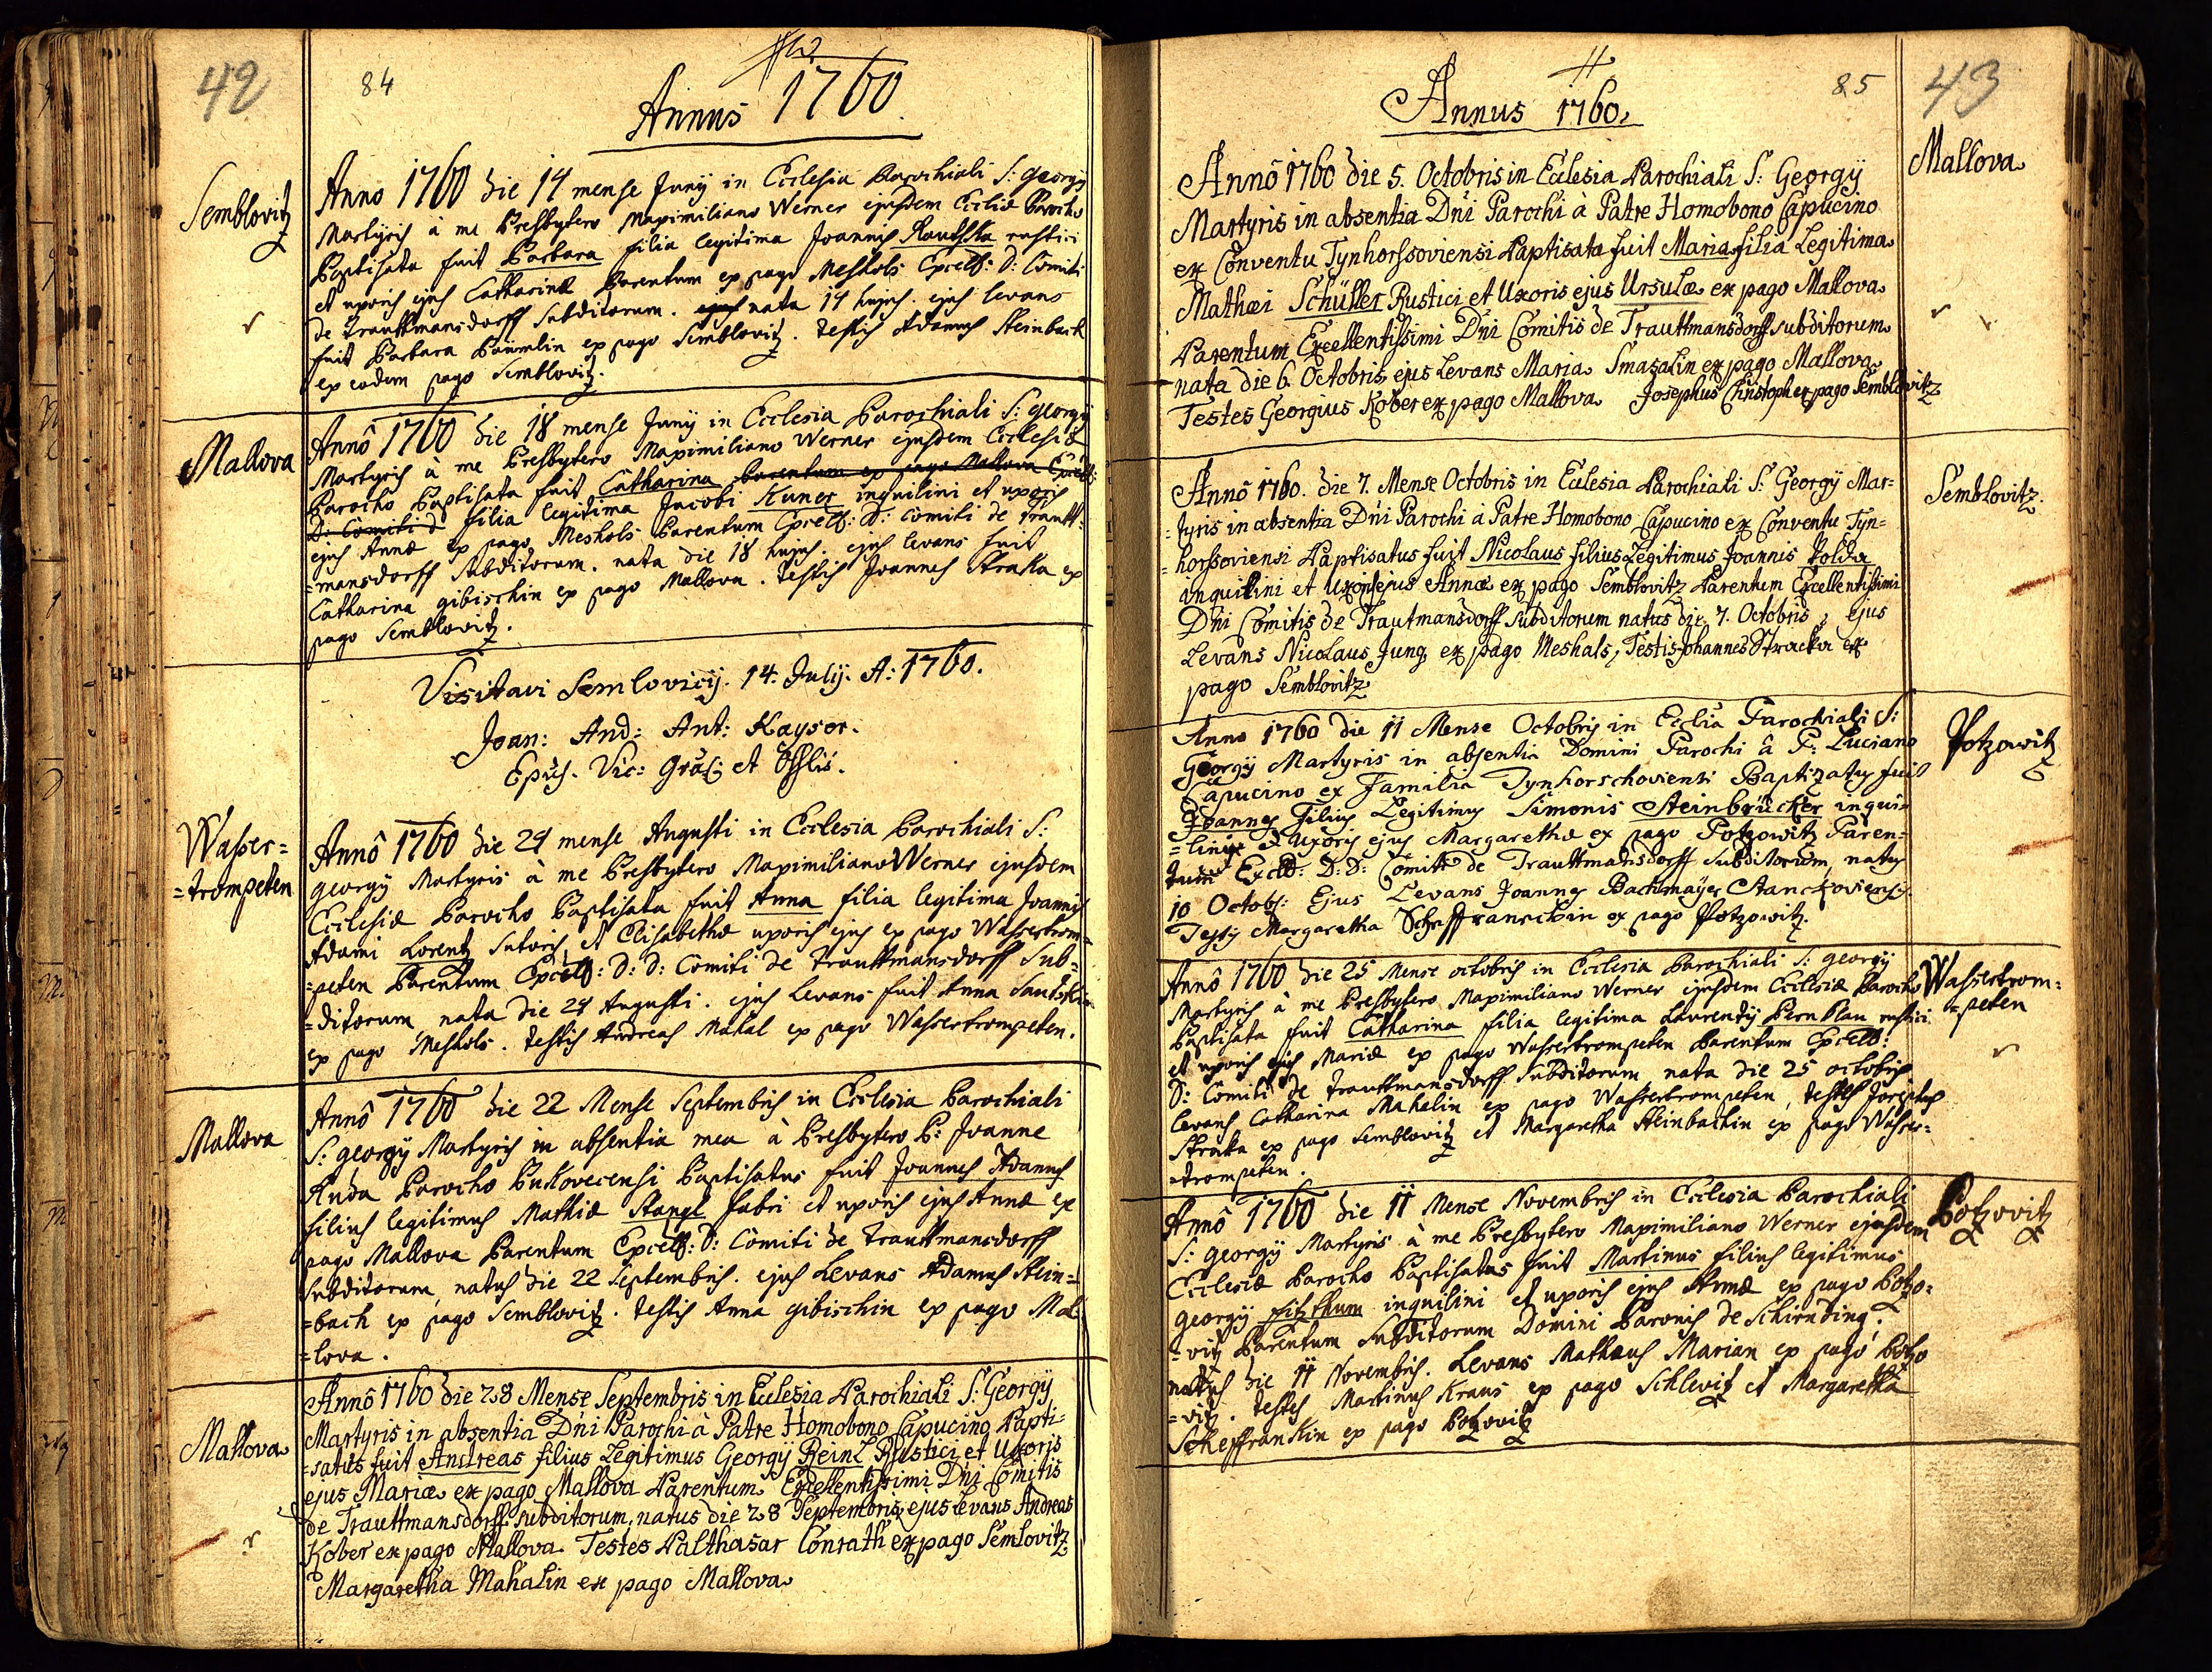 42
84
Annus 1760.
Semblovitz
Anno 1760 die 14 mense Junÿ in Ecclesia Parochiali S: Georgÿ
Martÿris à me Presbytero Maximiliano Werner ejusdem Eccliæ Parocho
Baptisata fuit Barbara filia legitima Joannis rustici
et uxoris ejus Catharinæ Parentum ex pago Meshols Excell: D: Comiti
de Trauttmansdorff Subditorum. nata 14 hujus. ejus levans
fuit Barbara Bäümlin ex pago Semblovitz. testis Adamus Steinbach
ex eodem pago Semblovitz.
Mallova
Annô 1760 die 18 mense Junÿ in Ecclesia Parochiali S: Georgÿ
Martyris à me Presbytero Maximiliano Werner ejusdem Ecclesiæ
Parocho Baptisata fuit Catharina Parentum ex pago Mallova Excell:
D: Comiti d filia legitima Jacobi Kuner inquilini et uxoris
ejus Annæ ex pago Meshols Parentum Excell: D: Comiti de Trautt=
=mansdorff Subditorum. nata die 18 hujus. ejus levans fuit
Catharina gibischin ex pago Mallova. testis Joannes Straka ex
pago Semblovitz.
Visitavi Semlovicÿ. 14. Julÿ. A: 1760.
Joan: And: Ant: Kayser.
Epús. Vic: Gnãlis et Offlis.
Wasser=
=trompeten
Annô 1760 die 24 mense Augusti in Ecclesia Parochiali S:
Georgÿ Martyris à me Presbytero Maximiliano Werner ejusdem
Ecclesiæ Parocho Baptisata fuit Anna filia legitima Joannis
Adami Lorentz Sutoris et Elisabethæ uxoris ejus ex pago Wassertrom=
=peten Parentum Excell: D: D: Comiti de Trauttmansdorff Sub=
=ditorum nata die 24 Augusti. ejus Levans fuit Anna
ex pago Meshols. testis Andreas Mahal ex pago Wassertrompeten.
Mallova
Annô 1760 die 22 Mense Septembris in Ecclesia Parochiali
S: Georgÿ Martyris in absentia mea à Presbytero P: Joanne
Kuda Parocho Pusloverensi Baptisatus fuit Joannes Adamus
filius legitimus Mathiæ Stangl fabri et uxoris ejus Annæ ex
pago Mallova Parentum Excell: D: Comiti de Trauttmansdorff
Subditorum, natus die 22 Septembris. ejus Levans Adamus Stein=
=bach ex pago Semblovitz. testis Anna gibischin ex pago Mal=
=lova.
Mallova
Annô 1760 die 28 Mense Septembris in Ecclesia Parochiali S: Georgÿ
Martyris in absentia Dn̄i Parochi à Patre Homobono Capucino Bapti=
=satus fuit Andreas filius Legitimus Georgÿ Reinl Rustici et Uxoris
ejus Mariæ ex pago Mallova Parentum Excellentissimi Dn̄i Comitis
de Trauttmansdorff subditorum, natus die 28 Septembris, ejus Levans Andreas
Kober ex pago Mallova Testes Balthasar Conrath ex pago Semlovitz
Margaretha Mahalin ex pago Mallova
85
43
Annus 1760.
Mallova
Annô 1760 die 5. Octobris in Ecclesia Parochiali S: Georgÿ
Martyris in absentia Dn̄i Parochi à Patre Homobono Capucino
ex Conventu Tynhorssoviensi Baptisata fuit Maria filia Legitima
Mathæi Schüller Rustici et Uxoris ejus Ursulæ ex pago Mallova
Parentum Excellentissimi Dn̄i Comitis de Trauttmansdorff subditorum
nata die 6 Octobris, ejus Levans Maria Smazalin ex pago Mallova
Testes Georgius Kober ex pago Mallova Josephus Christoph ex pago Semblovitz
Semblovitz.
Annô 1760. die 7. Mense Octobris in Ecclesia Parochiali S: Georgÿ Mar=
=tyris in absentia Dn̄i Parochi à Patre Homobono Capucino ex Conventu Tyn=
=horssoviensi Baptisatus fuit Nicolaus filius Legitimus Joannis Polka
inquilini et Uxoris ejus Annæ ex pago Semblovitz Parentum Excellentissimi
Dn̄i Comitis de Trautmansdorff subditorum natus die 7. Octobris, ejus
Levans Nicolaus Jung ex pago Meshals, Testis Johannes Stracka ex
pago Semblovitz
Potzowitz
Anno 1760 die 11 Mense Octobris in Ecclia Parochiali S:
Georgÿ Martyris in absentia Domini Parochi â P: Luciano
Capucino ex Familia Tynhorschoviensi Baptizatus fuit
Joannes Filius Legitimus Simonis Steinbrücker inqui=
=lini et Uxoris ejus Margarethæ ex pago Potzowitz Paren=
tum Excell: D: D: Comiti de Trauttmansdorff Subditorum, natus
10 Octobs: Ejus Levans Joannes Bachmayer Stanckoviensis.
Testis Margaretha Scheffranckin ex pago Potzowitz.
Wassertrom=
=peten
Annô 1760 die 25 Mense octobris in Ecclesia Parochiali S: georgÿ
Martyris à me Presbytero Maximiliano Werner ejusdem Ecclesiæ Parocho
Baptisata fuit Catharina filia legitima Laurentÿ Pernklau rustici
et uxoris ejus Mariæ ex pago Wassertrompeten Parentum Excell:
D: Comiti de Trauttmansdorff Subditorum nata die 25 octobris
levans Catharina Mahelin ex pago Wassertrompeten, testes Josephus
Straka ex pago Semblovitz et Margaretha Steinbachin ex pago Wasser=
=trompeten.
Potzovitz
Annô 1760 die 11 Mense Novembris in Ecclesia Parochiali
S: georgÿ Martyris à me Presbytero Maximiliano Werner ejusdem
Ecclesiæ Parocho Baptisatus fuit Martinus filius legitimus
georgÿ fitzthum inquilini et uxoris ejus Annæ ex pago Potzo=
=vitz Parentum Subditorum Domini Baronis de Schirnding.
natus die 11 Novembris. Levans Mathæus Marian ex pago Potzo
=vitz. testes Martinus Kraus ex pago Schlevitz et Margaretha
Scheffrankin ex pago Potzovitz